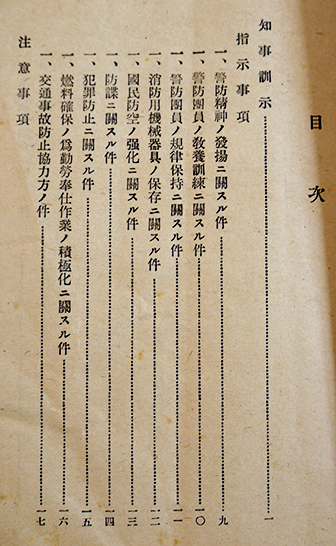 目次
知事訓示……………一
指示事項
一、警防精神ノ發揚ニ關スル件……………九
一、警防團員ノ敎養訓練ニ關スル件……………一〇
一、警防團員ノ規律保持ニ關スル件……………一一
一、消防用機械器具ノ保存ニ關スル件……………一二
一、國民防空ノ强化ニ關スル件……………一三
一、防諜ニ關スル件……………一四
一、犯罪防止ニ關スル件……………一五
一、燃料確保ノ爲勤勞奉仕作業ノ積極化ニ關スル件……………一六
一、交通事故防止協力方ノ件……………一七
注意事項